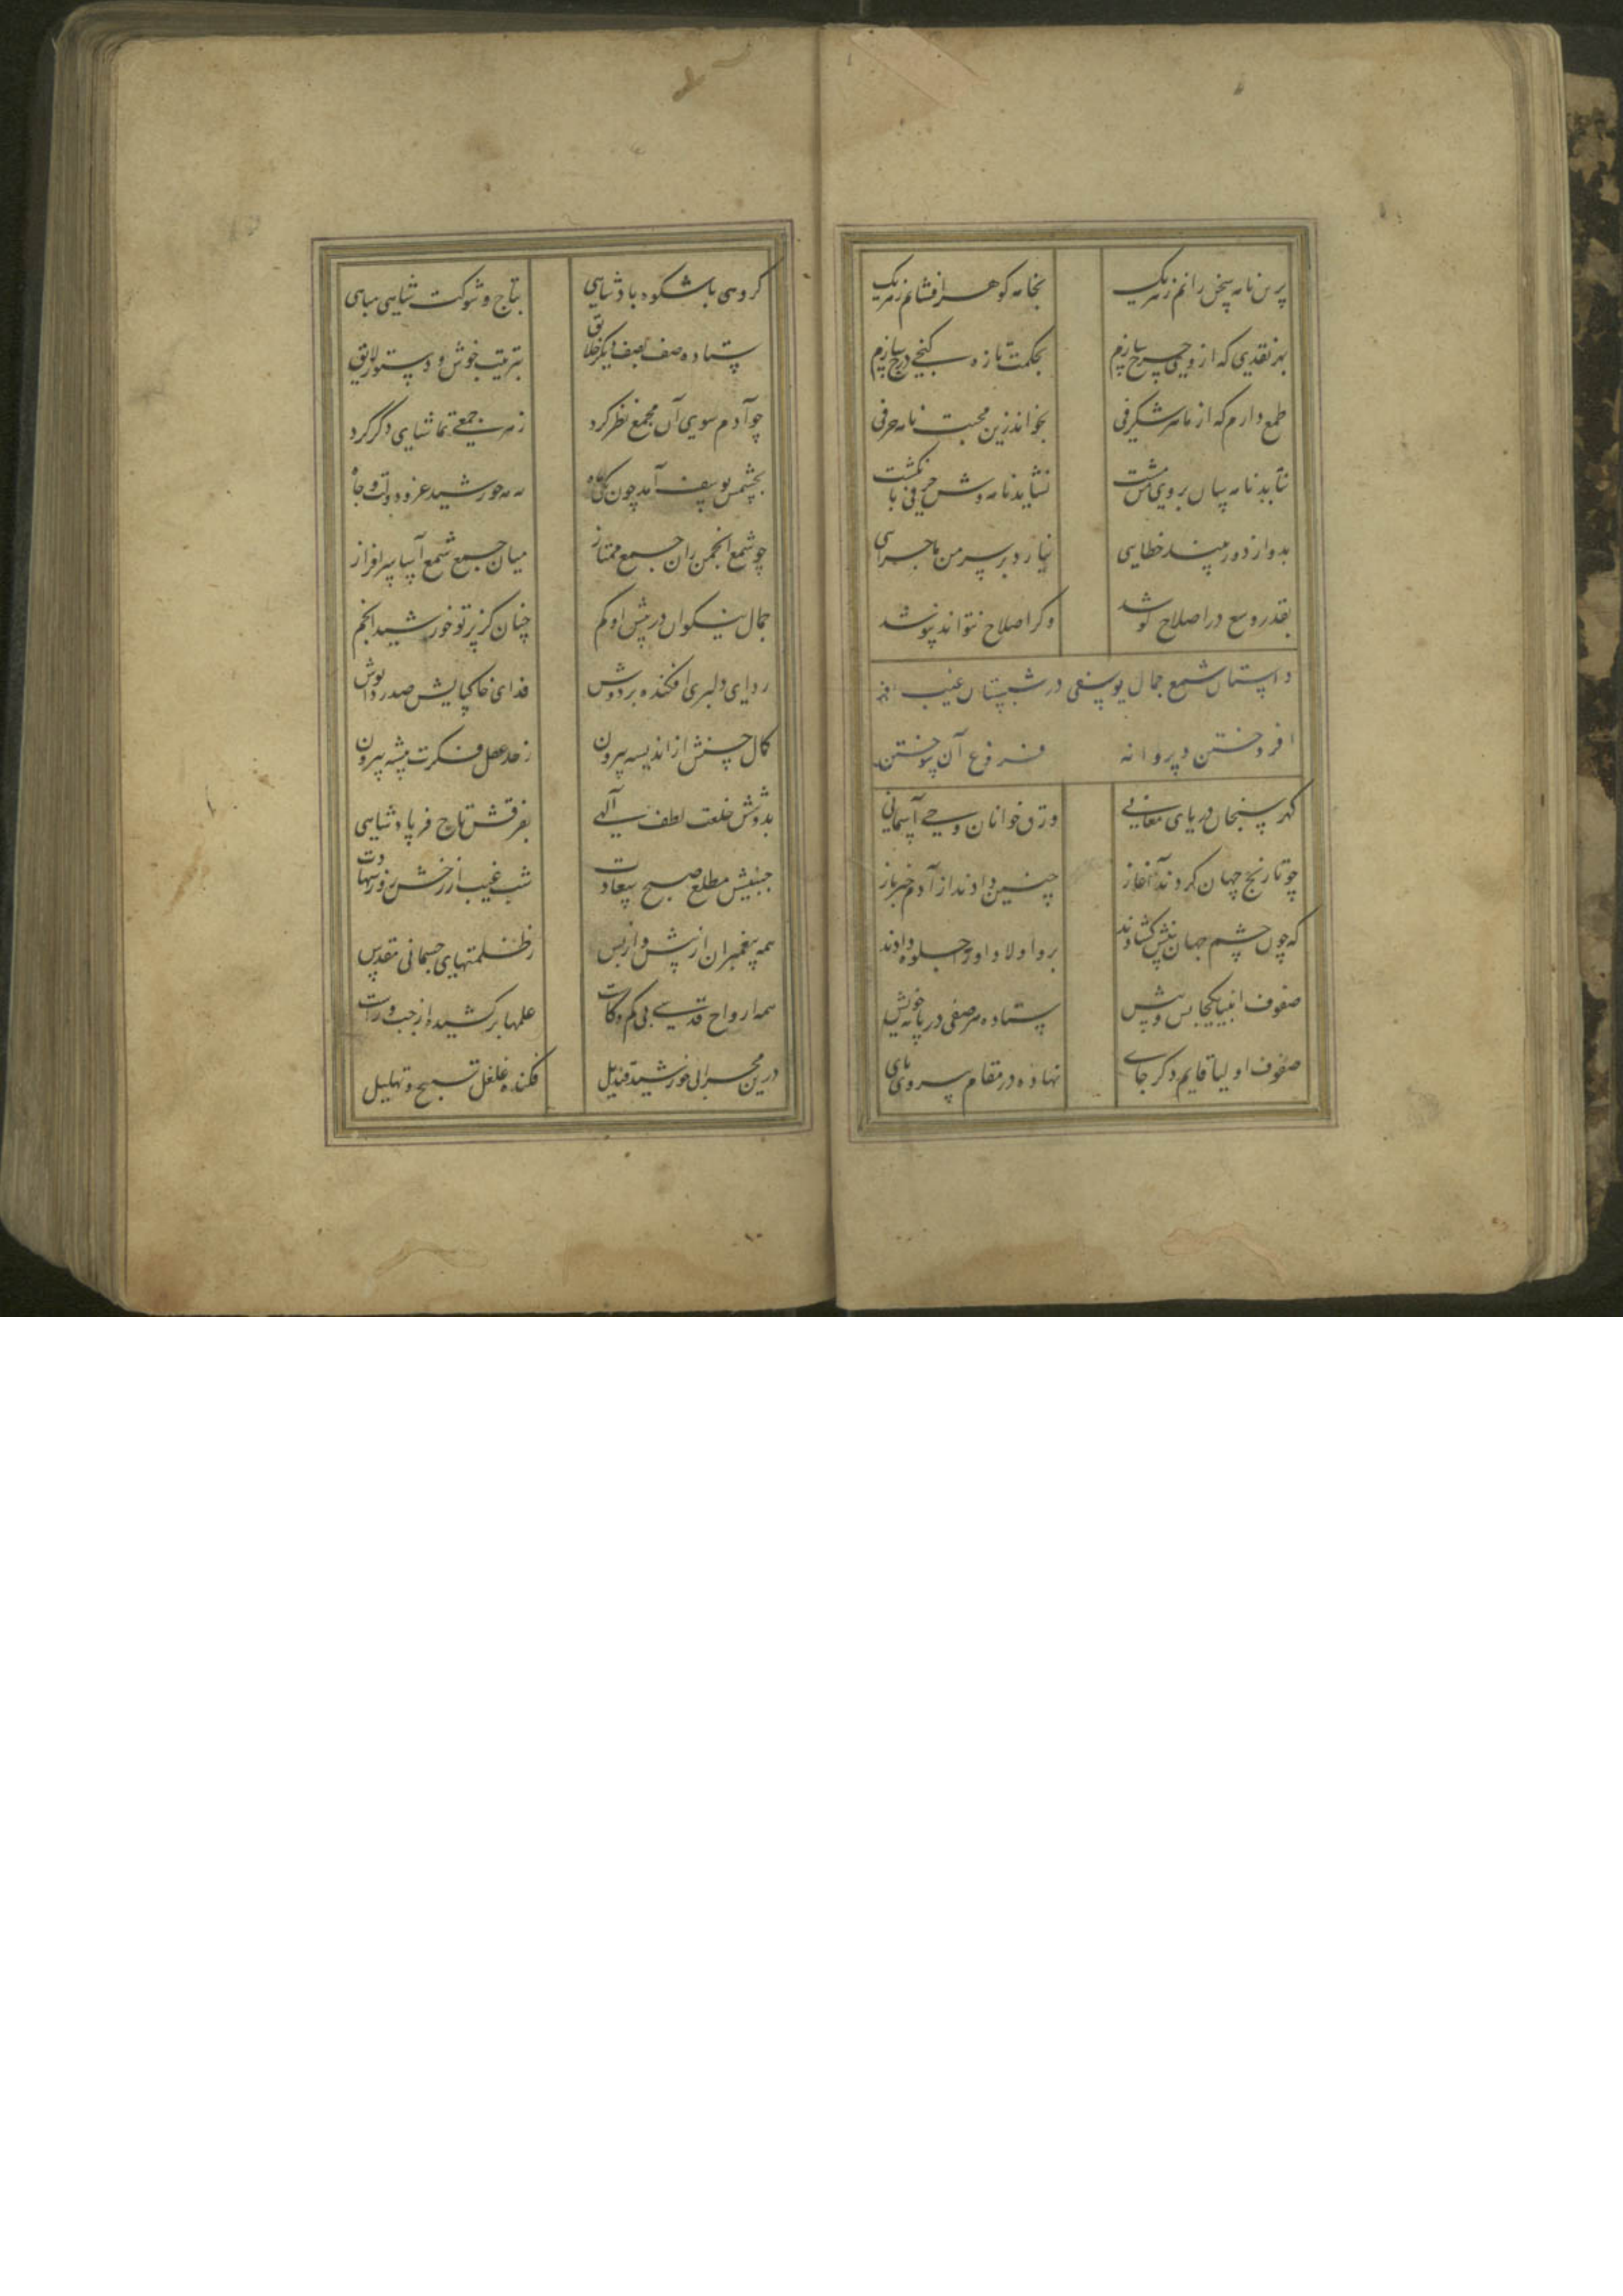 برین نامه سخن رانم ز هر یک بخامه کوهر افشانم ز هر یک
بهر نقدی که از وی خرج سازم بحکمت تازه کنجی درج سازم
طمع دارم که از نامه شکرفی بخواند زین محبت نامه حرفی
نتابد نامه سان بر روی من پشت نساید نامه وش حرفی بانکشت
بدو از دور بیند خطایی نیارد بر سر من ماجرایی
بقدر وسع در اصلاح کوشد وکر اصلاح نتواند بپوشد
داستان شمع جمال یوسفی در شبستان غیب
افروختن و پروانه فروغ آن سوختن
کهر سنجان دریای معانی ورق خوانان وحی آسمانی
چو تاریخ جهان کردند آغاز چنین دادند از آدم خبر باز
که چون چشم جهان بینش کشادند برو اولاد او را جلوه دادند
صفوف انبیا یکجا پس و پیش ستاده هر صفی در پایه خویش
صفوف اولیا قایم دکر جای نهاده در مقام پیروی پای
کروهی با شکوه پادشاهی بتاج و شوکت شاهی مباهی
ستاده صف بصف دیکر خلایق بترتیب خوش و دستور لایق
چو آدم سوی آن مجمع نظر کرد ز هر جمعی تماشای دکر کرد
بچشمش یوسف آمد چون یکی ماه نه مه خورشید عز و دولت و جاه
چو شمع انجمن زان جمع ممتاز میان جمع شمع آسا سرافراز
جمال نیکوان در پیش او کم چنان کز پرتو خورشید انجم
ردای دلبری افکنده بر دوش فدای خاک پایش صد ردا پوش
کمال حسنش از اندیشه بیرون ز حد عقل فکرت پیشه بیرون
بدوشش خلعت لطف آلهی بفرقش تاج فر پادشاهی
جبینش مطلع صبح سعادت شب غیب از رخش روز شهادت
همه پیغمبران از پیش و از پس ز ظلمتهای جسمانی مقدس
همه ارواح قدسی بی کم و کاست علمها بر کشیده از چپ و راست
درین محراب خورشید قندیل فکنده غلغل تسبیح و تهلیل